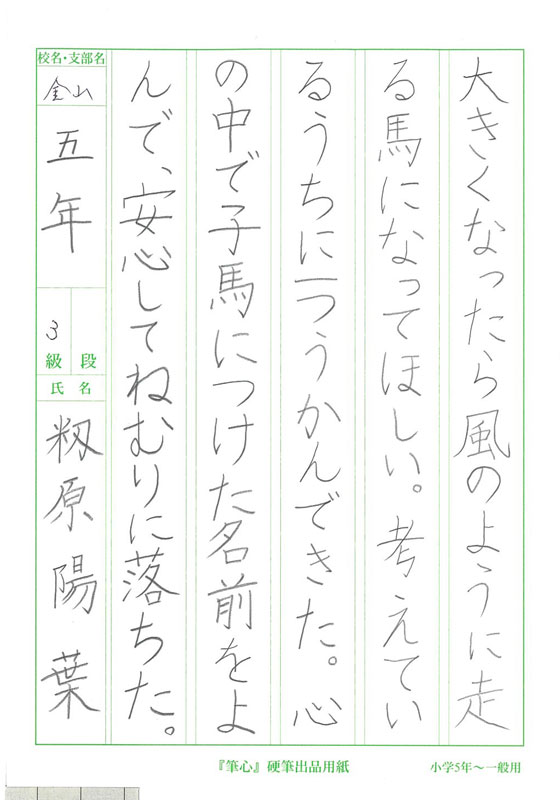 大きくなったら風のように走
る馬になってほしい。考えてい
るうちに一つうかんできた。心
の中で子馬につけた名前をよ
んで、安心してねむりに落ちた。
校名・支部名
金山
五年
3
級 段
氏名
籾原陽葉
『筆心』硬筆出品用紙
小学5年～一般用